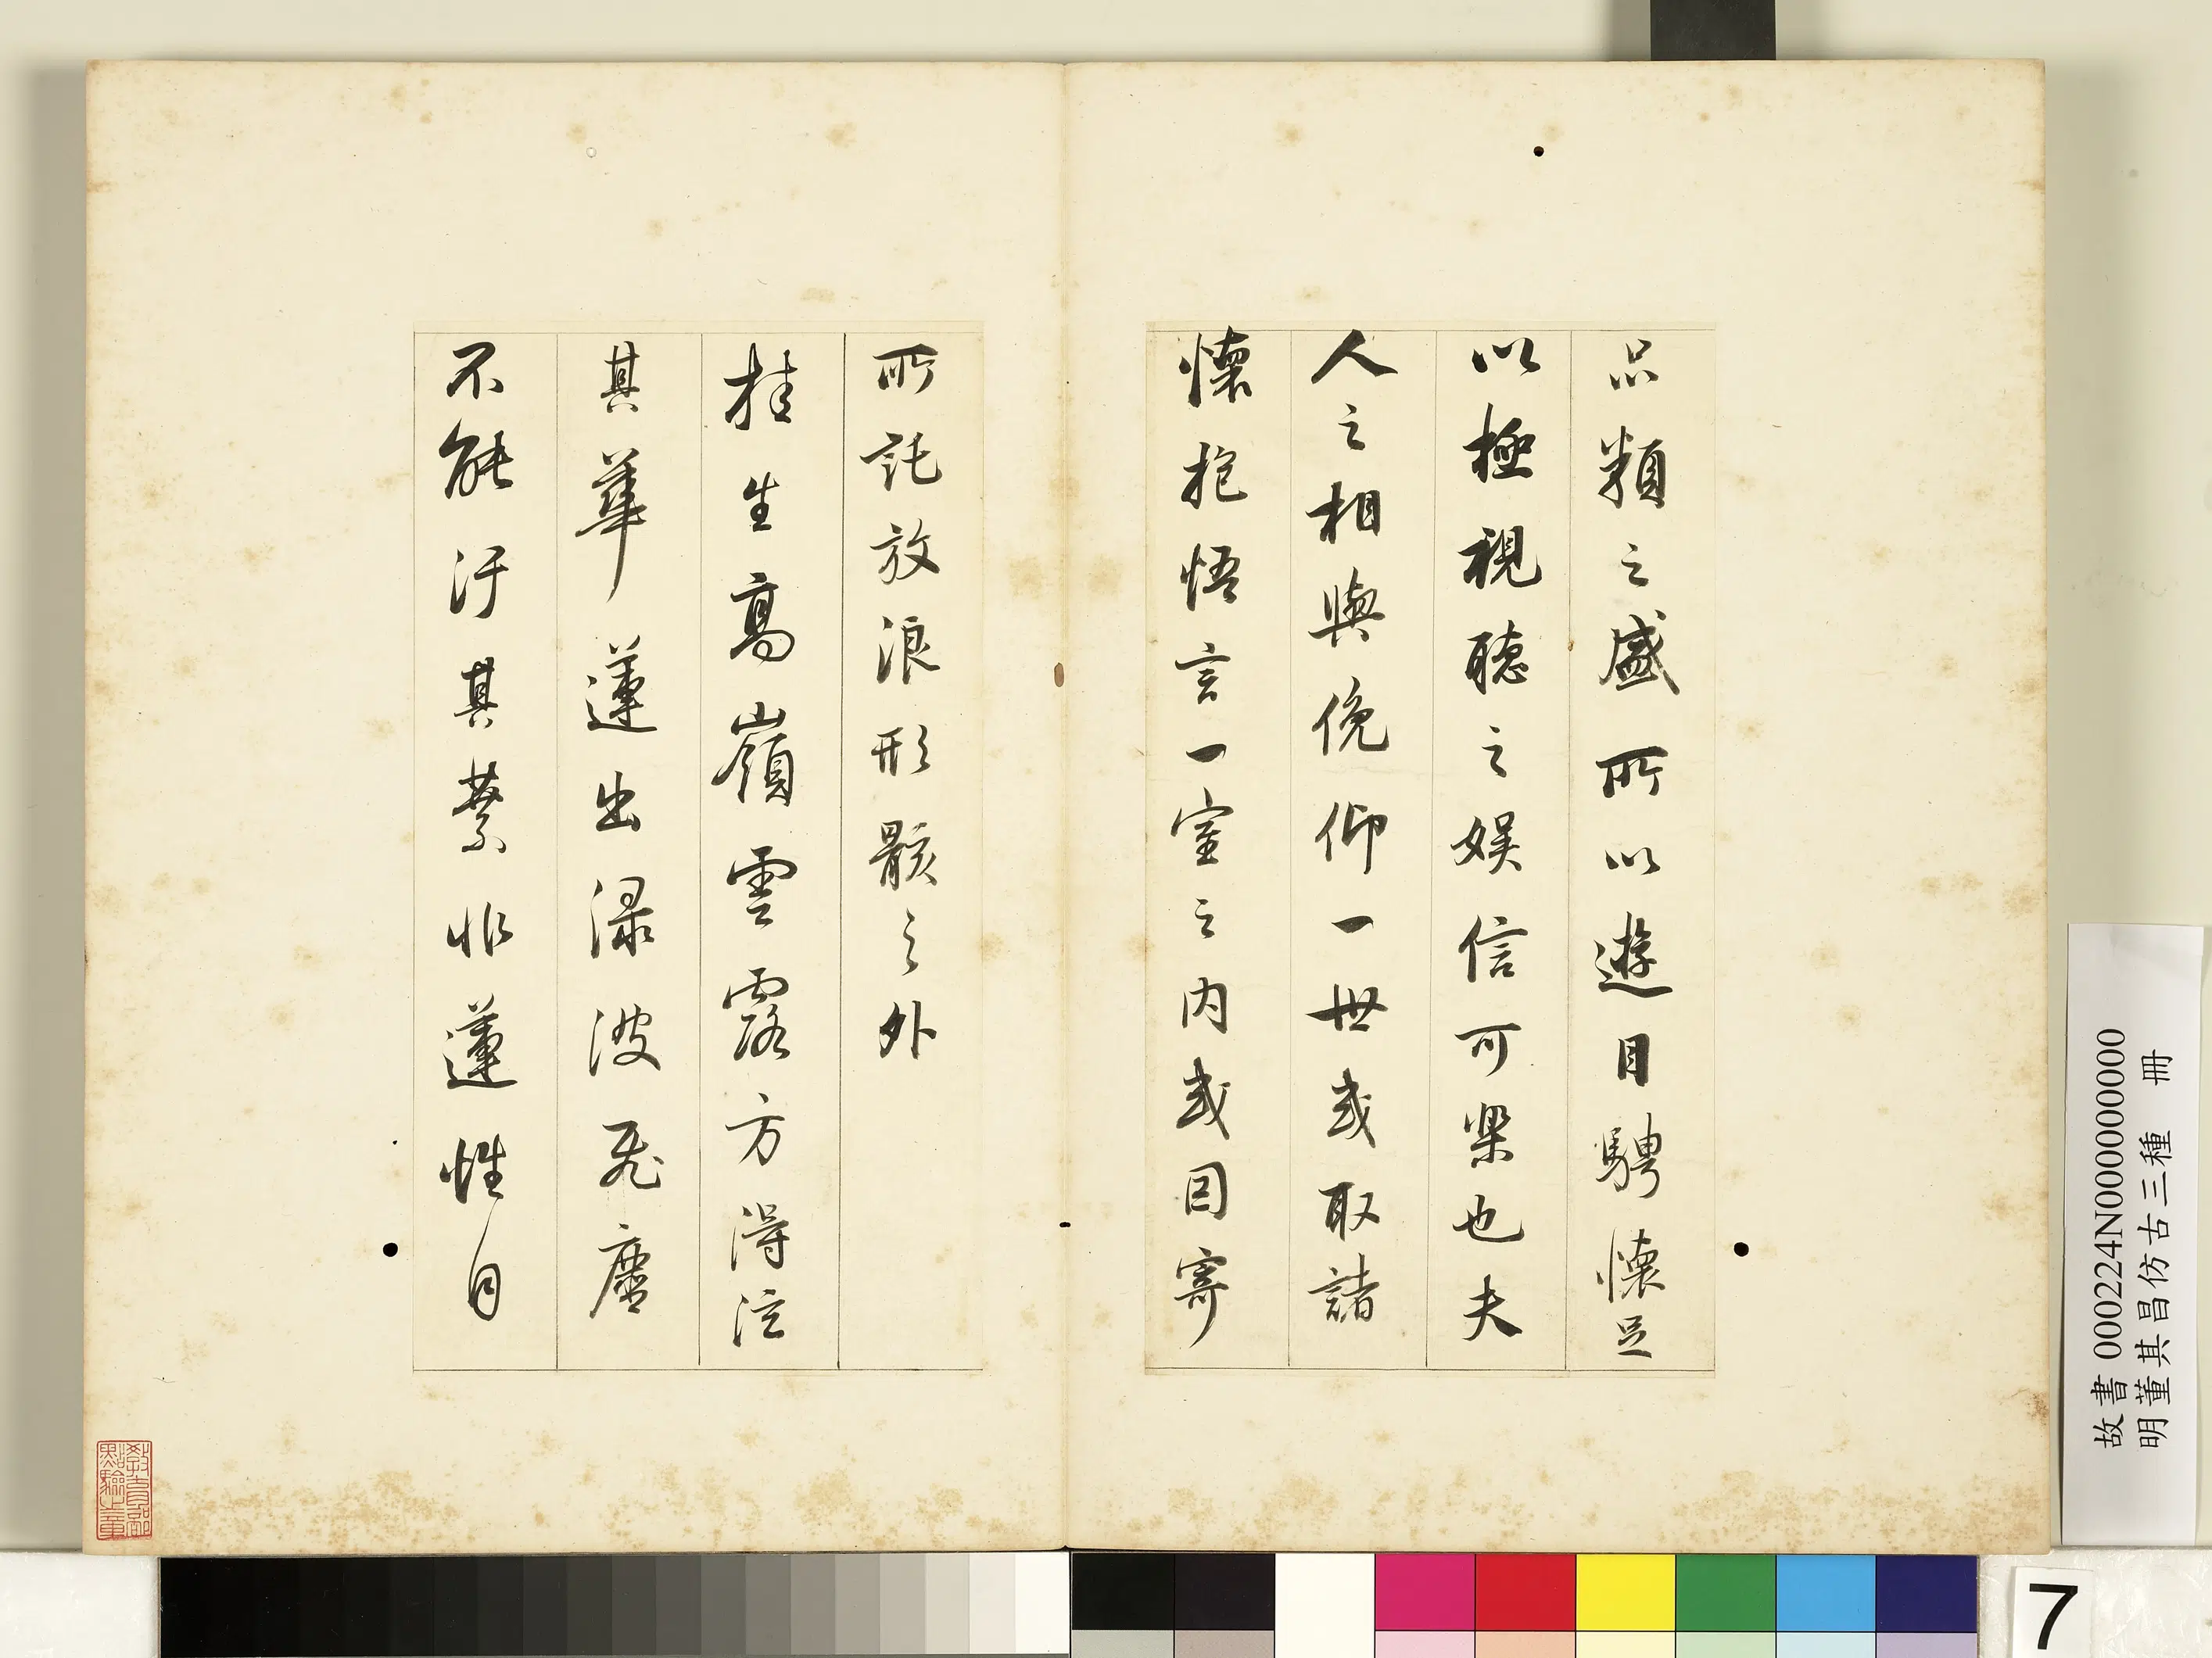 品類之盛所以遊目騁懷足
以極視聽之娛信可樂也夫
人之相與俛仰一世或取諸
懷抱悟言一室之内或因寄
所託放浪形骸之外
桂生高嶺雲露方得泫
其華蓮出淥波飛塵
不能汙其葉非蓮性自
教育部
點驗之章
故書 000224N000000000
明董其昌仿古三種 冊
7